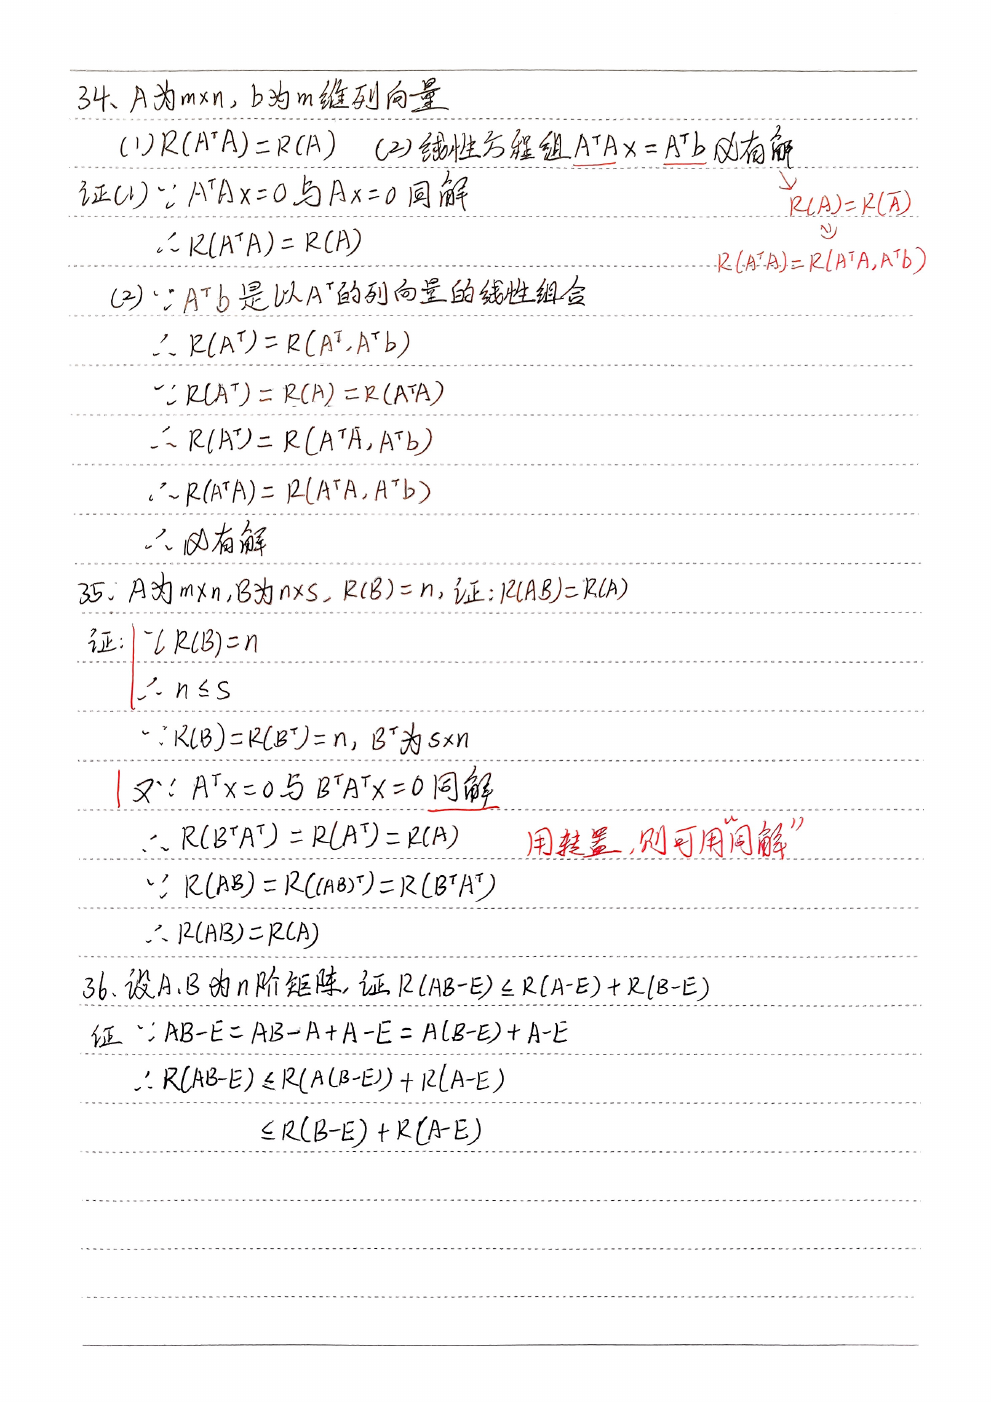 34、A为m×n, b为m维列向量
(1) R(AᵀA)=R(A) (2)线性方程组AᵀAx=Aᵀb必有解
R(A)=R(Ā)
证(1) ∵ AᵀAx=0与Ax=0同解
∴ R(AᵀA)=R(A)
R(AᵀA)=R(AᵀA, Aᵀb)
(2) ∵ Aᵀb是以Aᵀ的列向量的线性组合
∴ R(Aᵀ)=R(Aᵀ, Aᵀb)
∵ R(Aᵀ)=R(A)=R(AᵀA)
∴ R(Aᵀ)=R(AᵀA, Aᵀb)
∴ R(AᵀA)=R(AᵀA, Aᵀb)
∴ 必有解
35. A为m×n, B为n×s, R(B)=n, 证: R(AB)=R(A)
证: ∵ R(B)=n
∴ n≤s
∵ R(B)=R(Bᵀ)=n, Bᵀ为s×n
又∵ Aᵀx=0与BᵀAᵀx=0同解
∴ R(BᵀAᵀ)=R(Aᵀ)=R(A) 用转置,则可用“同解”
∵ R(AB)=R((AB)ᵀ)=R(BᵀAᵀ)
∴ R(AB)=R(A)
36、设A、B为n阶矩阵, 证R(AB-E)≤R(A-E)+R(B-E)
证 ∵ AB-E=AB-A+A-E=A(B-E)+A-E
∴ R(AB-E)≤R(A(B-E))+R(A-E)
≤R(B-E)+R(A-E)